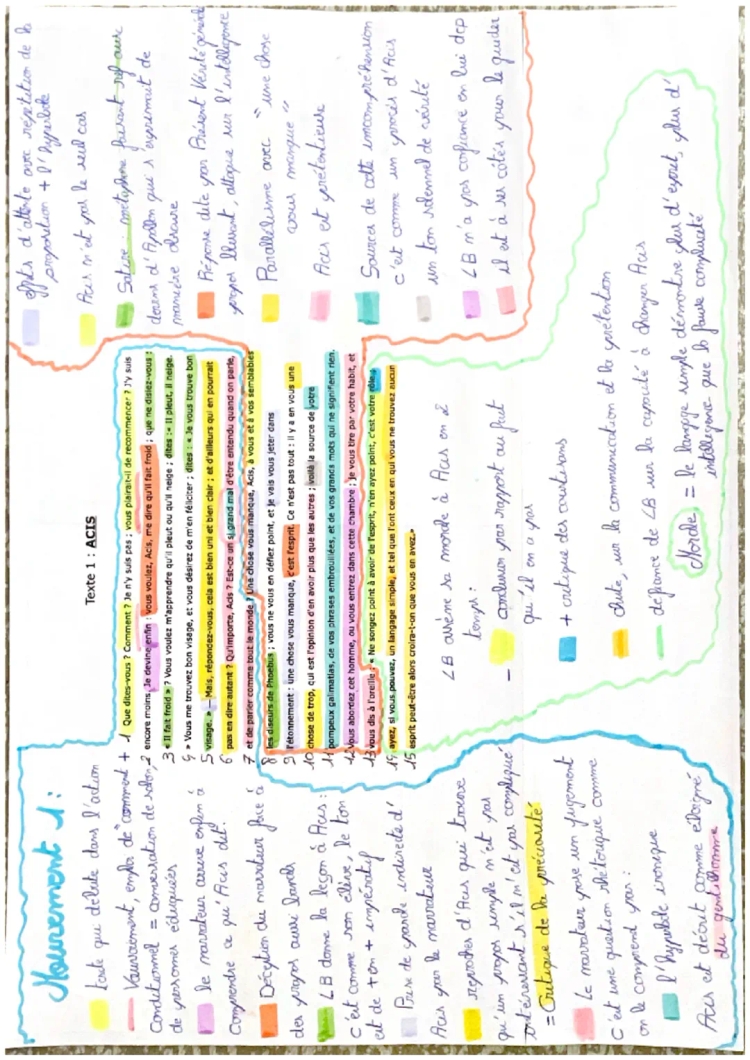 Mouvement 1 :
texte qui débute dans l'action
Vouvoiement, emploi de "comment +
Conditionnel = conversation de salon,
de personnes éduquées
le narrateur arrive enfin à
comprendre ce qu'Acis dit.
Déception du narrateur face à
des propos aussi banals
LB donne la leçon à Acis :
c'est comme son élève, le ton
est de + en + impératif
Prise de parole indirecte d'
Acis par le narrateur
reproches d'Acis qui trouve
qu'un propos simple n'est pas
intéressant s'il n'est pas compliqué
= Critique de la préciosité
Le narrateur pose un jugement
c'est une question rhétorique comme
on le comprend par :
l'hyperbole ironique
Acis est décrit comme éloigné
du gentilhomme
Texte 1 : ACIS
1 Que dites-vous ? Comment ? Je n'y suis pas ; vous plairait-il de recommencer ? J'y suis
2 encore moins. Je devine enfin : vous voulez, Acis, me dire qu'il fait froid ; que ne disiez-vous :
3 « Il fait froid » ? Vous voulez m'apprendre qu'il pleut ou qu'il neige ; dites : « Il pleut, il neige.
4 » Vous me trouvez bon visage, et vous désirez de m'en féliciter ; dites : « Je vous trouve bon
5 visage. » — Mais, répondez-vous, cela est bien uni et bien clair ; et d'ailleurs qui ne pourrait
6 pas en dire autant ? Qu'importe, Acis ? Est-ce un si grand mal d'être entendu quand on parle,
7 et de parler comme tout le monde ? Une chose vous manque, Acis, à vous et à vos semblables
8 les diseurs de Phoebus ; vous ne vous en défiez point, et je vais vous jeter dans
9 l'étonnement : une chose vous manque, c'est l'esprit. Ce n'est pas tout : il y a en vous une
10 chose de trop, qui est l'opinion d'en avoir plus que les autres ; voilà la source de votre
11 pompeux galimatias, de vos phrases embrouillées, et de vos grands mots qui ne signifient rien.
12 Vous abordez cet homme, ou vous entrez dans cette chambre ; je vous tire par votre habit, et
13 vous dis à l'oreille : « Ne songez point à avoir de l'esprit, n'en ayez point, c'est votre rôle ;
14 ayez, si vous pouvez, un langage simple, et tel que l'ont ceux en qui vous ne trouvez aucun
15 esprit peut-être alors croira-t-on que vous en avez. »
LB assène sa morale à Acis en 2
temps :
- conclusion par rapport au fait
qu'il en a pas
+ critique des courtisans
chute, sur la communication et la prétention
défiance de LB sur la capacité à changer Acis
Morale = le langage simple démontre plus d'esprit, plus d'
intelligence que la fausse complexité
effets d'attente avec répétition de la
proposition + l'hyperbole
Acis n'est pas le seul cas
Satire métaphore faisant ref aux
devins d'Apollon qui s'exprimait de
manière obscure
Réponse dite par Présent Vérité générale
propos blessant, attaque sur l'intelligence
Parallélisme avec "une chose
vous manque"
Acis est prétentieuse
Sources de cette incompréhension
c'est comme un procès d'Acis
un ton solennel de vérité
LB n'a pas confiance en lui dcp
il est à ses côtés pour le guider